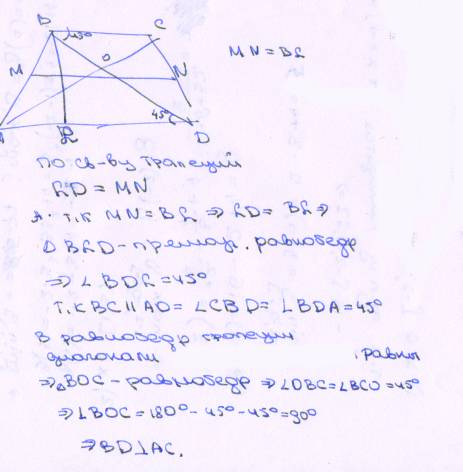 B
45°
C
MN = BL
O
M
N
A
L
45°
D
по св-ву трапеций
LD = MN
А. т.к MN = BL ⇒ LD = BL ⇒
Δ BLD - прямоуг. равнобедр
⇒ ∠BDL = 45°
т.к BC || AD = ∠CBD = ∠BDA = 45°
В равнобедр трапеции
диагонали равны
⇒ ΔBOC - равнобедр ⇒ ∠OBC = ∠BCO = 45°
⇒ ∠BOC = 180° - 45° - 45° = 90°
⇒ BD ⊥ AC.